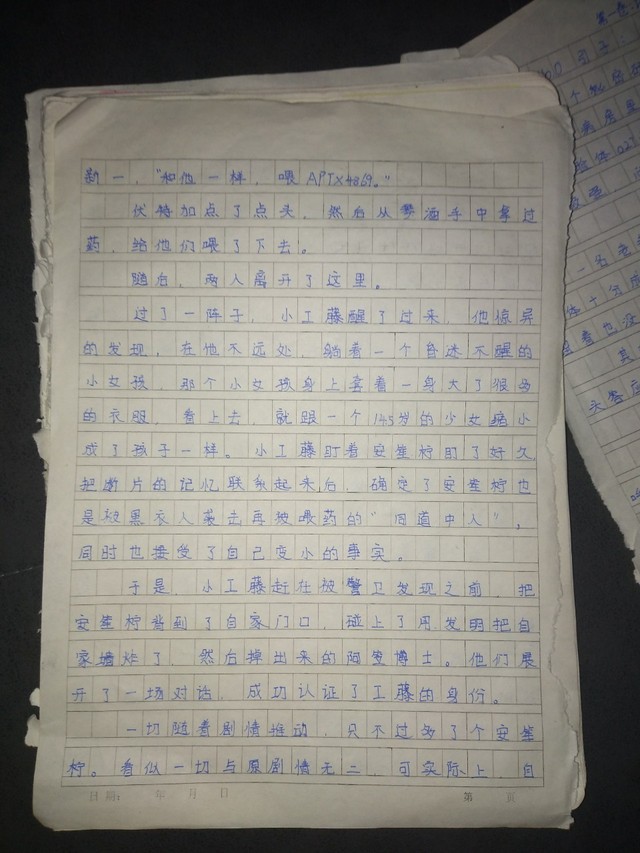 新一，“和他一样，喂APTX4869。”
伏特加点了点头，然后从琴酒手中拿过
药，给他们喂了下去。
随后，两人离开了这里。
过了一阵子，小工藤醒了过来，他惊异
的发现，在他不远处，躺着一个昏迷不醒的
小女孩，那个小女孩身上套着一身大了很多
的衣服，看上去，就跟一个14.5岁的少女缩小
成了孩子一样。小工藤盯着安笙柠盯了好久，
把断片的记忆联系起来后，确定了安笙柠也
是被黑衣人袭击再被喂药的“同道中人”，
同时也接受了自己变小的事实。
于是，小工藤赶在被警卫发现之前，把
安笙柠背到了自家门口，碰上了用发明把自
家墙炸了，然后掉出来的阿笠博士。他们展
开了一场对话，成功认证了工藤的身份。
一切随着剧情推动，只不过多了个安笙
柠。看似一切与原剧情无二，可实际上，自
日期： 年 月 日 第 页
第一卷
引子：
个
病房里
体027
一名
体十分
着也没
其
头